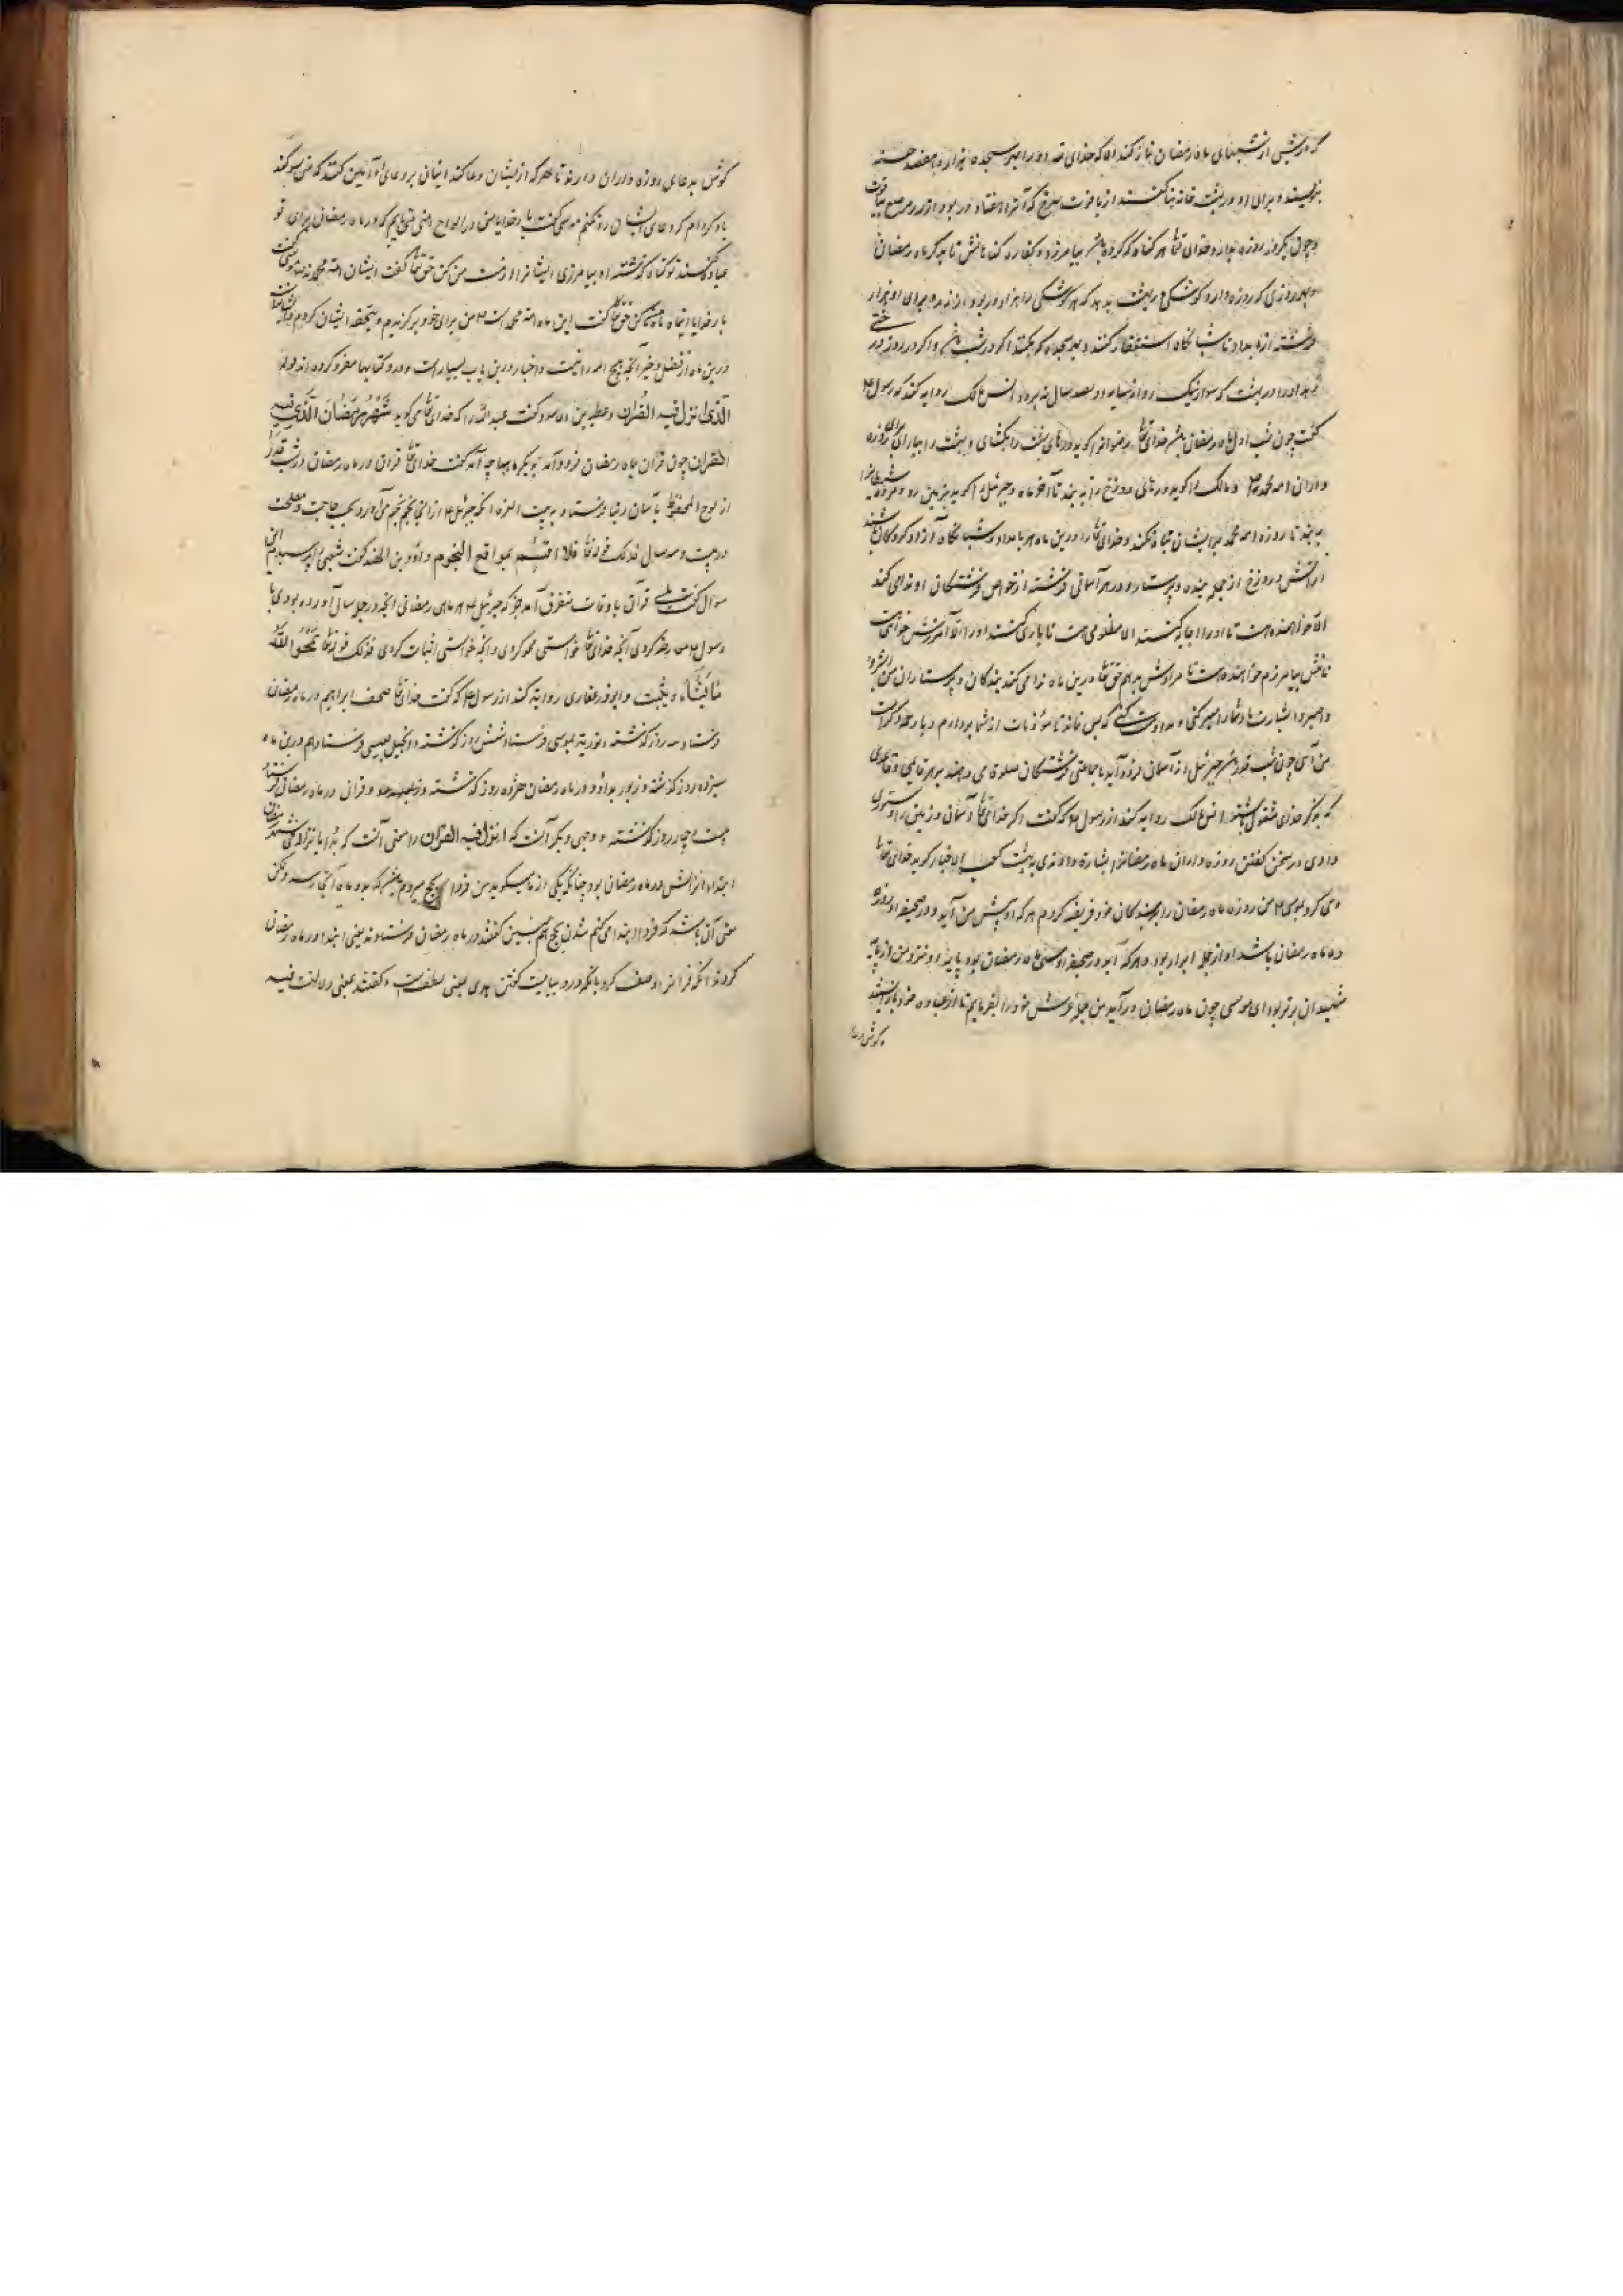 که در شبی از شبهای ماه رمضان نماز کند الا که خدای تع او را بهر سجده هزار و هفصد حسنه
بنویسند و برای او در بهشت خانه بنا کنند از یاقوت سرخ که آنرا هفتاد در بود از زر مرصع بیاقوت
و چون یکروز روزه بدارد خدای تعالی هر گناه که کرده باشد بیامرزد و کفاره گناهانش تا بدیگر ماه رمضان
و بهر روزی که روزه دارد کوشکی در بهشت بدهد که هر کوشکی را هزار در بود از زر و برای او هزار
فرشته از بامداد تا شبانگاه استغفار کنند و بهر سجده که بکند اگر در شب باشد و اگر در روز درختی
بدهد او را در بهشت که سوار نیک رو از سایه او بصد سال نه برد و انس مالک روایه کند که رسول ۴
گفت چون شب اول ماه رمضان باشد خدای تعالی رضوانرا گوید درهای بهشت را بگشای و بهشت را بیارای برای روزه
داران امه محمد و مالک را گوید درهای دوزخ را به بند تا آخر ماه و جبرئیل را گوید بزمین رو و مرده شیاطین را
به بند تا روزه امه محمد بر ایشان تباه نکنند و خدای تعالی را درین ماه هر بامداد و شبانگاه آزاد کردگان باشند
از آتش دوزخ از جمله بنده و پرستار و در هر آسمانی فرشته از خواص فرشتگان او ندا می کند
الا خواهنده هست تا او را اجابه کنند الا مظلومی هست تا یاری کنند او را الا آمرزش خواهی هست
تا منش بیامرزم خواهنده هست تا مرادش بدهم حق تعالی درین ماه ندا می کند بندگان و پرستاران من
و اصبروا بشارت باد شما را صبر کنی و مداومت کنی که بس نماند تا مؤنات از شما بردارم و با رحمه و کرامت
من آئی چون شب قدر باشد جبرئیل از آسمان فرود آید با جماعتی فرشتگان صلوة می دهند بر هر قایمی و قاعدی
که بذکر خدای مشغول باشند و انس مالک روایه کند از رسول ۴ که گفت اگر خدای تعالی آسمان و زمین را دستوری
دادی در سخن گفتن روزه داران ماه رمضانرا بشارة دادندی به بهشت کعب الاخبار گوید خدای تعالی
وحی کرد بموسی ۴ من روزه ماه رمضان را بر بندگان خود فریضه کردم هر که او پیش من آید و در صحیفه او روزه
ده ماه رمضان باشد او از جمله ابرار بود و هر که آید و در صحیفه او سی ماه رمضان بود پایه او نزد من از پایه
شهیدان برتر بود ای موسی چون ماه رمضان درآید من جمله عرش خود را بفرمایم تا از عباده خود باز ایستند
و گوش بدعای
گوش بدعای روزه داران دارند تا هر که از ایشان دعا کند ایشان بر دعای او آمین کنند که من سوگند
یاد کرده ام که دعای ایشان رد نکنم موسی گفت بار خدایا من در الواح امتی می یابم که در ماه رمضان برای تو
عباده کنند تو گناه گذشته او بیامرزی ایشانرا از امت من کن حق تعالی گفت ایشان امه محمدند موسی گفت
بار خدایا این ماه مرا کن حق تعالی گفت این ماه امه محمد است من برای خود برگزیدم و بتحفه ایشان کردم و ایشانراست
درین ماه از فضل و خیر آنچه هیچ امه را نیست و اخبار درین باب بسیار است و در کتابها مفرد کرده اند قوله
الذی انزل فیه القرآن و عطیه بن الاسود گفت عبد الله را که خدای تعالی می گوید شهر رمضان الذی فیه
القرآن چون قرآن بماه رمضان فرود آمد بدیگر ماهها چه آمد گفت خدای تعالی قرآن در ماه رمضان در شب قدر
از لوح المحفوظ بآسمان دنیا فرستاد به بیت العزه آنگه جبرئیل ۴ از آنجا نجم نجم می آورد بحسب حاجت و مصلحت
در بیست و سه سال فذلک قوله تعالی فلا اقسم بمواقع النجوم داود بن ابی الهند گفت شعبی را پرسیدم این
سؤال گفت بلی قرآن باوقات متفرق آمد جز که جبرئیل ۴ هر ماه رمضانی آنچه در جمله سال آورده بودی با
رسول ۴ معارضه کردی آنچه خدای تعالی خواستی محو کردی و آنچه خواستی اثبات کردی فذلک قوله تعالی یمحو الله
ما یشاء و یثبت و ابوذر غفاری روایه کند از رسول ۴ که گفت خدای تعالی صحف ابراهیم در ماه رمضان
فرستاد سه روز گذشته و توریة بموسی فرستاد شش روز گذشته و انجیل بعیسی فرستاد هم درین ماه
سیزده روز گذشته و زبور بداود در ماه رمضان هژده روز گذشته و قرآن در ماه رمضان فرستاد
بیست و چهار روز گذشته و وجهی دیگر آنست که انزل فیه القرآن را معنی آنست که بدأ بانزاله فی شهر رمضان
ابتداء انزالش در ماه رمضان بود چنانکه یکی از ما میگوید من فردا بحج میروم
معنی آن باشد که فردا ابتدا می کنم شدن بحج همچنین گفتند در ماه رمضان فرستادند یعنی ابتدا در ماه رمضان
کردند آنگه قرآنرا وصف کرد بآنکه درو بیانست گفتن هدی یعنی لطف است و گفتند بمعنی دلالت فیه